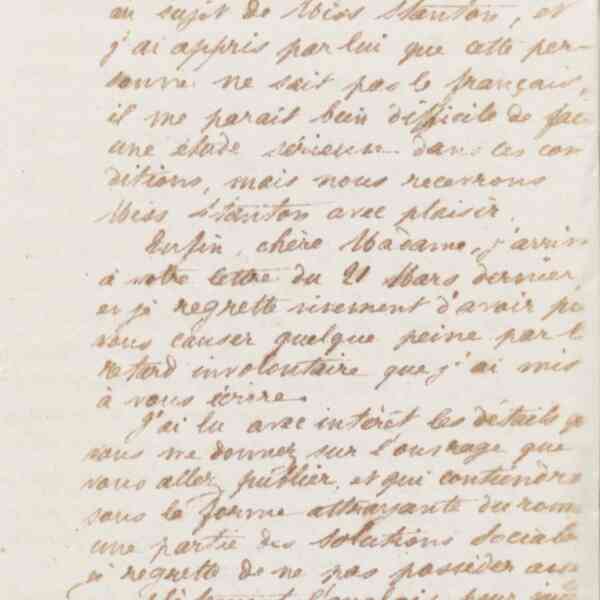 au sujet de Miss Stanton, et
j'ai appris par lui que cette per-
sonne ne sait pas le français,
il me parait bien difficile de fai
une étude sérieuse dans ces con
ditions, mais nous recevrons
Miss Stanton avec plaisir.
Enfin, chère Madame, j'arrive
à votre lettre du 21 Mars dernier,
et je regrette vivement d'avoir pu
vous causer quelque peine par le
retard involontaire que j'ai mis
à vous écrire.
J'ai lu avec intérêt les détails q
vous me donnez sur l'ouvrage que
vous allez publier, et qui contiendra
sous la forme attrayante du rom
une partie des solutions sociale
je regrette de ne pas posséder ass
l'anglais pour